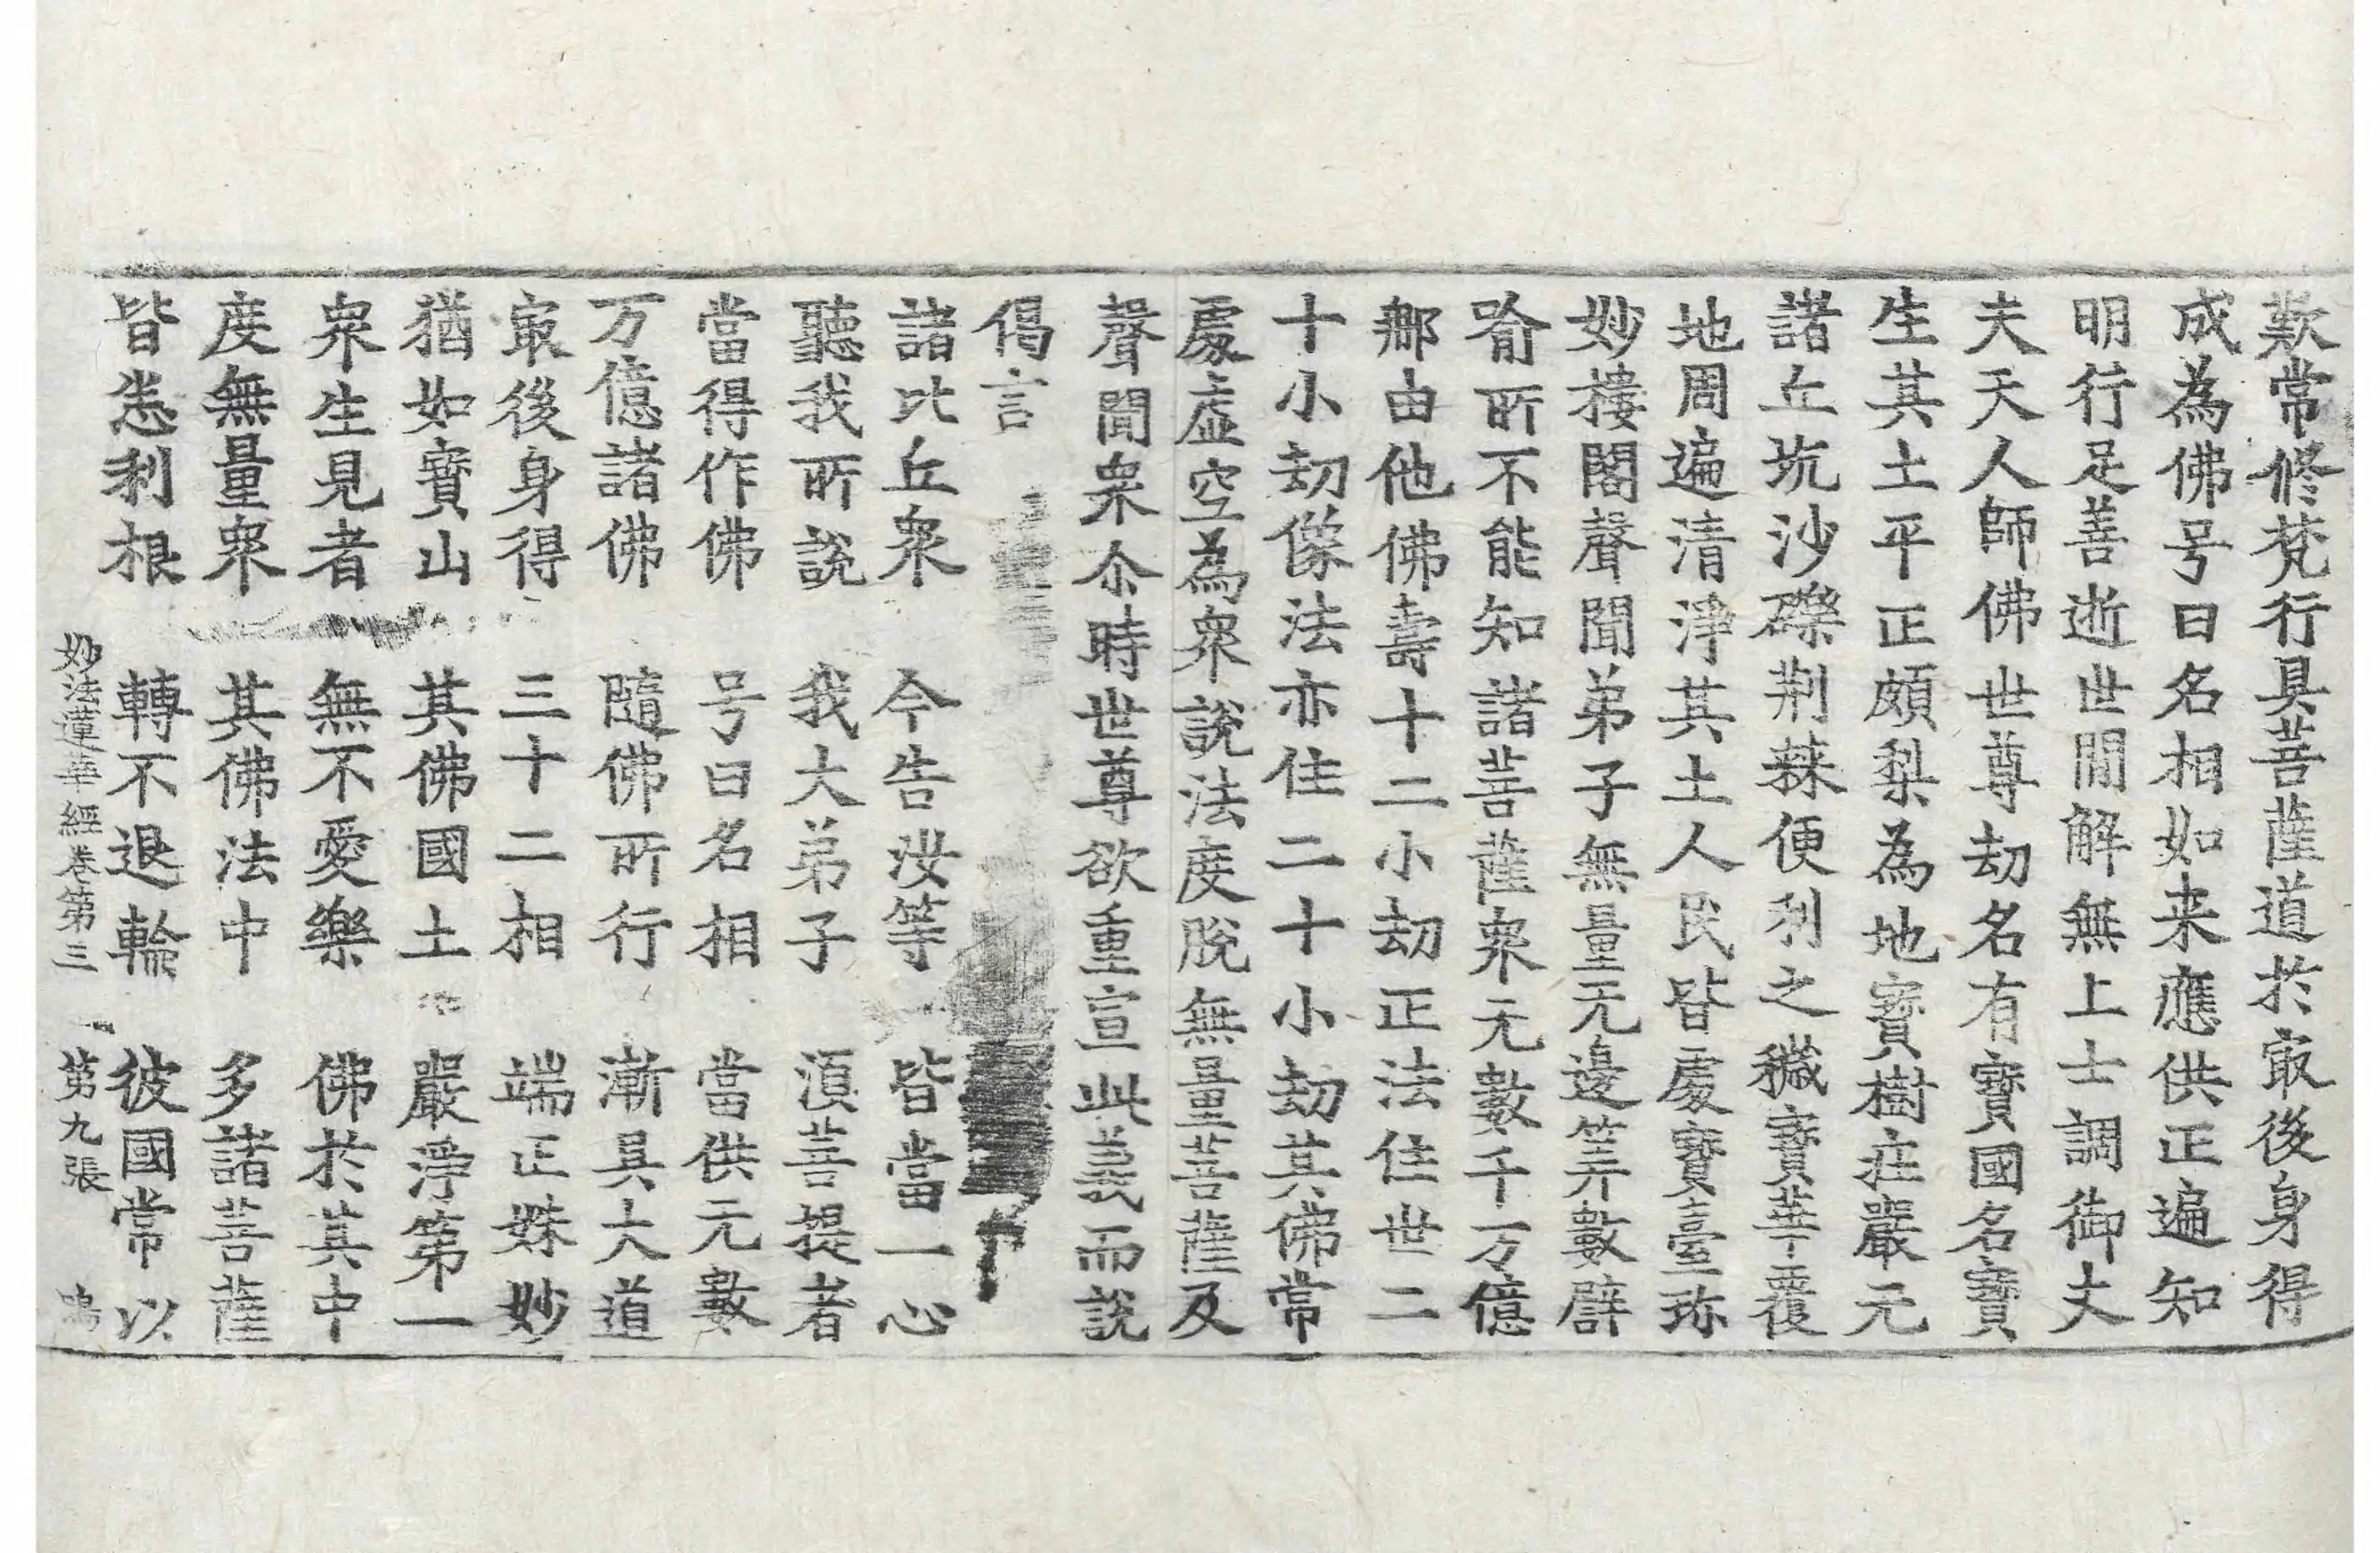 歎常修梵行具菩薩道於㝡後身得
成為佛号曰名相如来應供正遍知
明行足善逝世間解無上士調御丈
夫天人師佛世尊劫名有寶國名寶
生其土平正頗梨為地寶樹庄嚴无
諸丘坑沙礫荆蕀便利之穢寶華覆
地周遍清淨其土人民皆處寶臺珎
妙樓閣聲聞弟子無量无邊筭數譬
喻所不能知諸菩薩衆无數千万億
那由他佛壽十二小劫正法住世二
十小劫像法亦住二十小劫其佛常
處虛空為衆說法度脫無量菩薩及
聲聞衆尒時世尊欲重宣此義而說
偈言
諸比丘衆 今告汝等 皆當一心
聽我所說 我大弟子 湏菩提者
當得作佛 号曰名相 當供无數
万億諸佛 隨佛所行 漸具大道
㝡後身得 三十二相 端正姝妙
猶如寶山 其佛國土 嚴淨第一
衆生見者 無不愛樂 佛於其中
度無量衆 其佛法中 多諸菩薩
皆悉利根 轉不退輪 彼國常以
妙法蓮華經卷第三 第九張 鳴